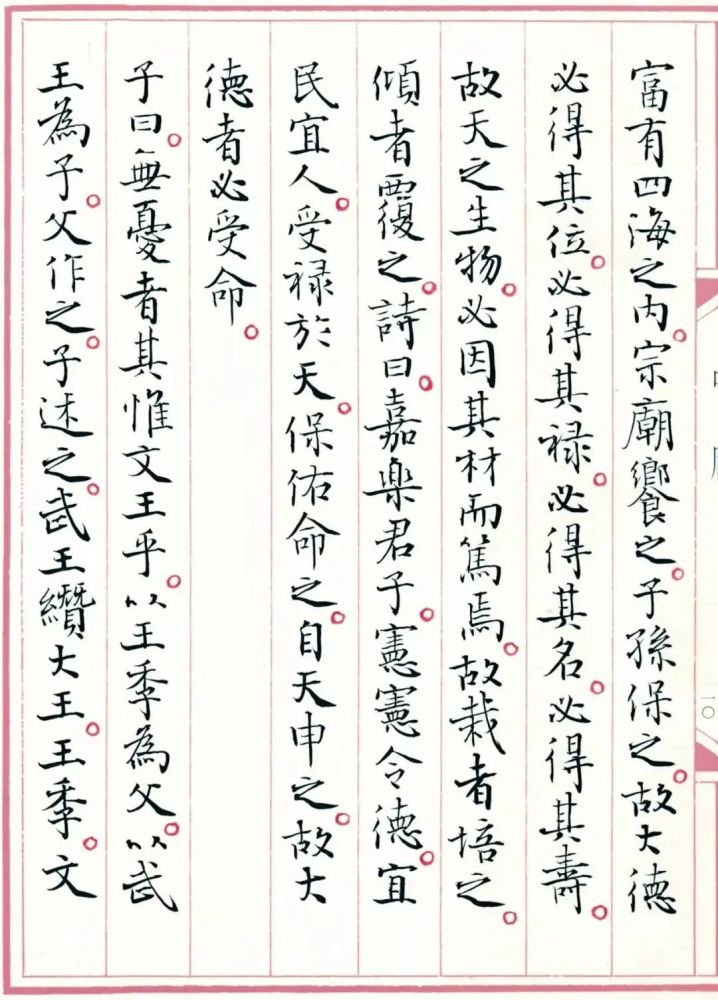 富有四海之内。宗廟饗之。子孫保之。故大德
必得其位。必得其禄。必得其名。必得其壽。
故天之生物。必因其材而篤焉。故栽者培之。
傾者覆之。詩曰。嘉樂君子。憲憲令德。宜
民宜人。受禄於天。保佑命之。自天申之。故大
德者必受命。
子曰。無憂者其惟文王乎。以王季為父。以武
王為子。父作之。子述之。武王纘大王。王季。文